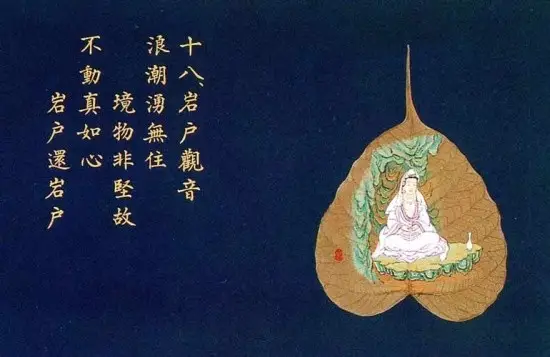 十八、岩户觀音
浪潮湧無住
境物非堅故
不動真如心
岩户還岩户